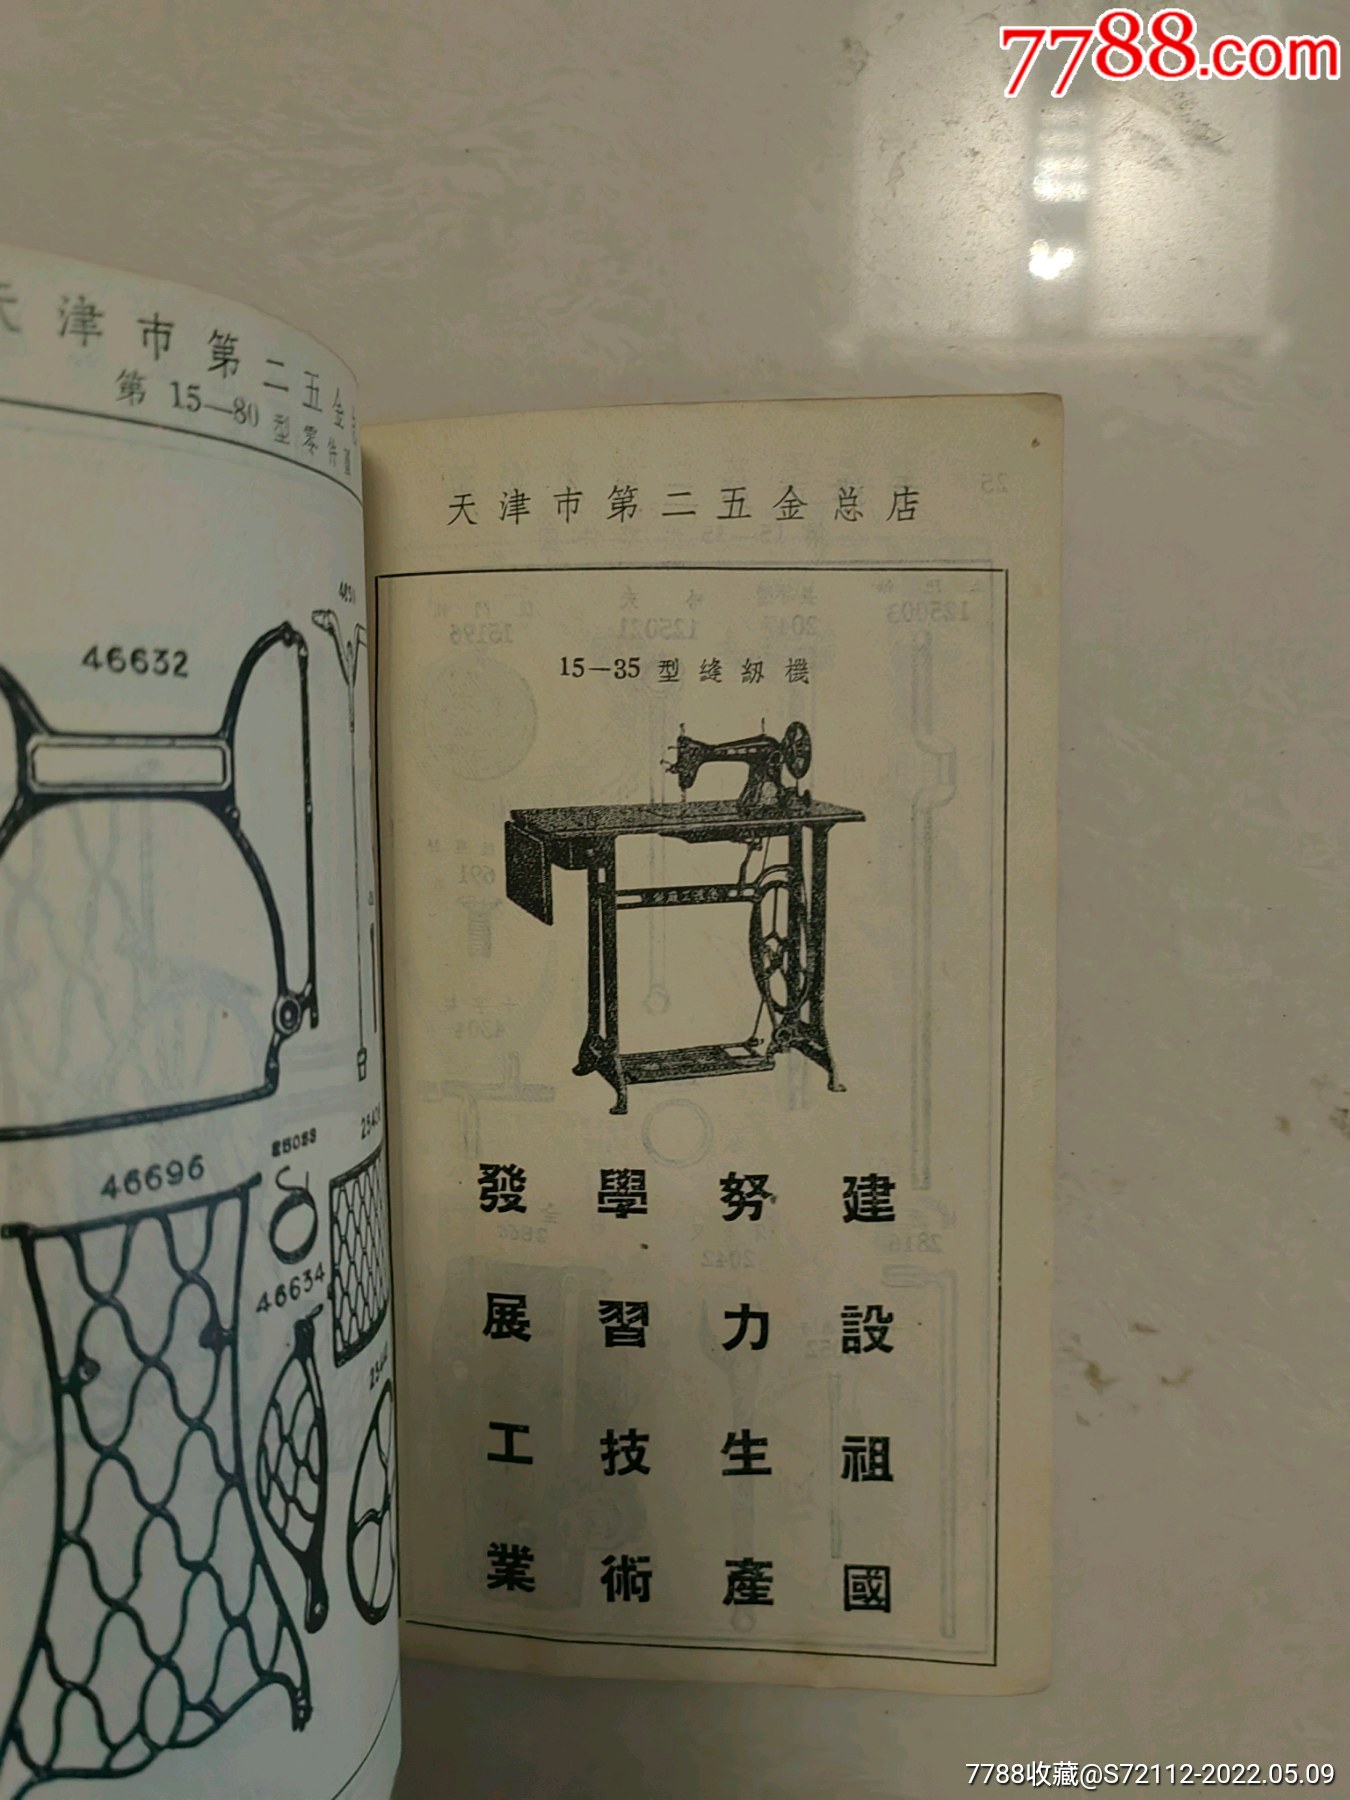 7788.com
天津市第二五金
第 15—80 型零件圖
46632
46696
25083
46634
天津市第二五金总店
15—35 型縫紉機
建設祖國
努力生產
學習技術
發展工業
7788收藏@S72112-2022.05.09